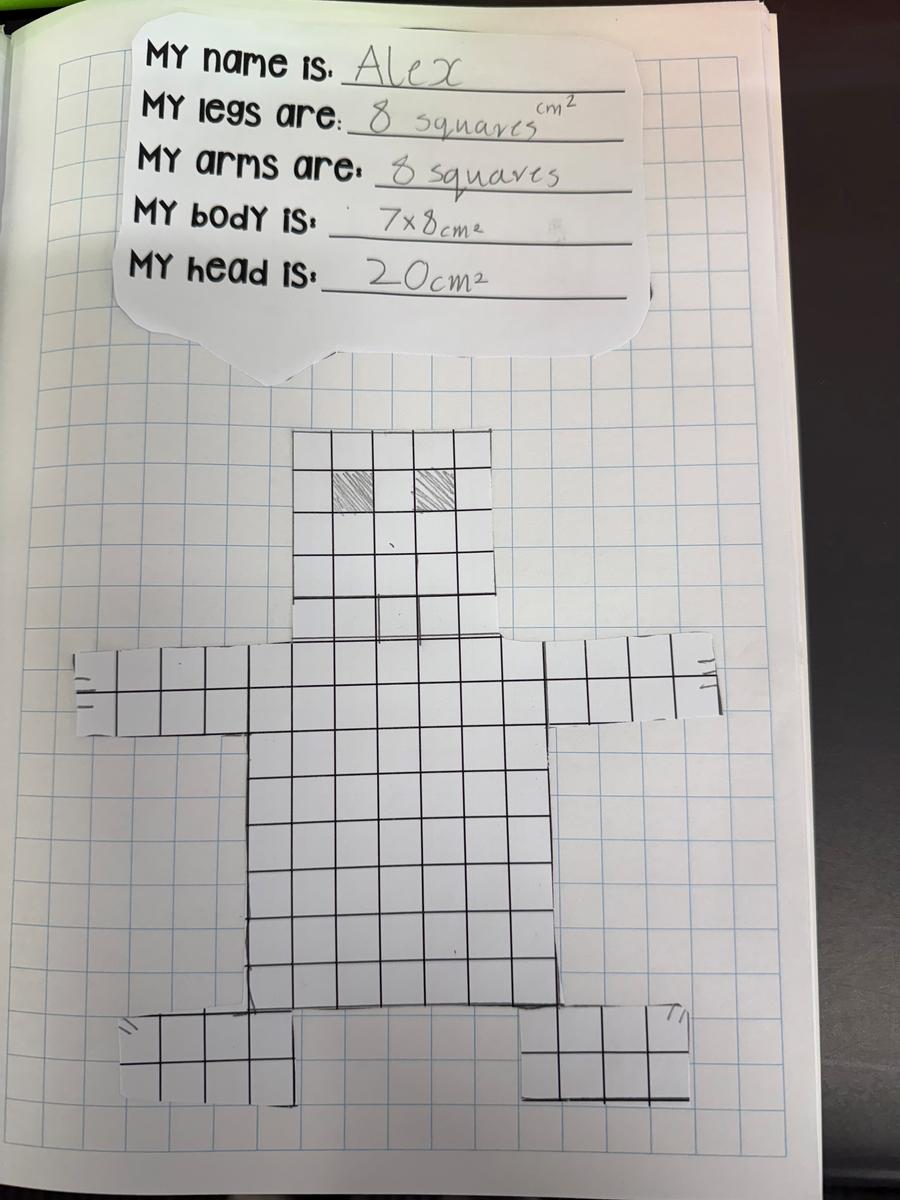 MY name is: Alex
MY legs are: 8 squares cm²
MY arms are: 8 squares
MY BODY IS: 7x8cm²
MY head IS: 20cm²